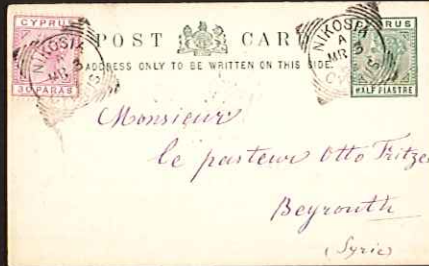 CYPRUS
30 PARAS
NIKOSIA
A
MR
CYPRUS
POST CARD
ADDRESS ONLY TO BE WRITTEN ON THIS SIDE.
NIKOSIA
A
MR
CYPRUS
HALF PIASTRE
Monsieur
le pasteur Otto Fritze
Beyrouth
(Syrie)